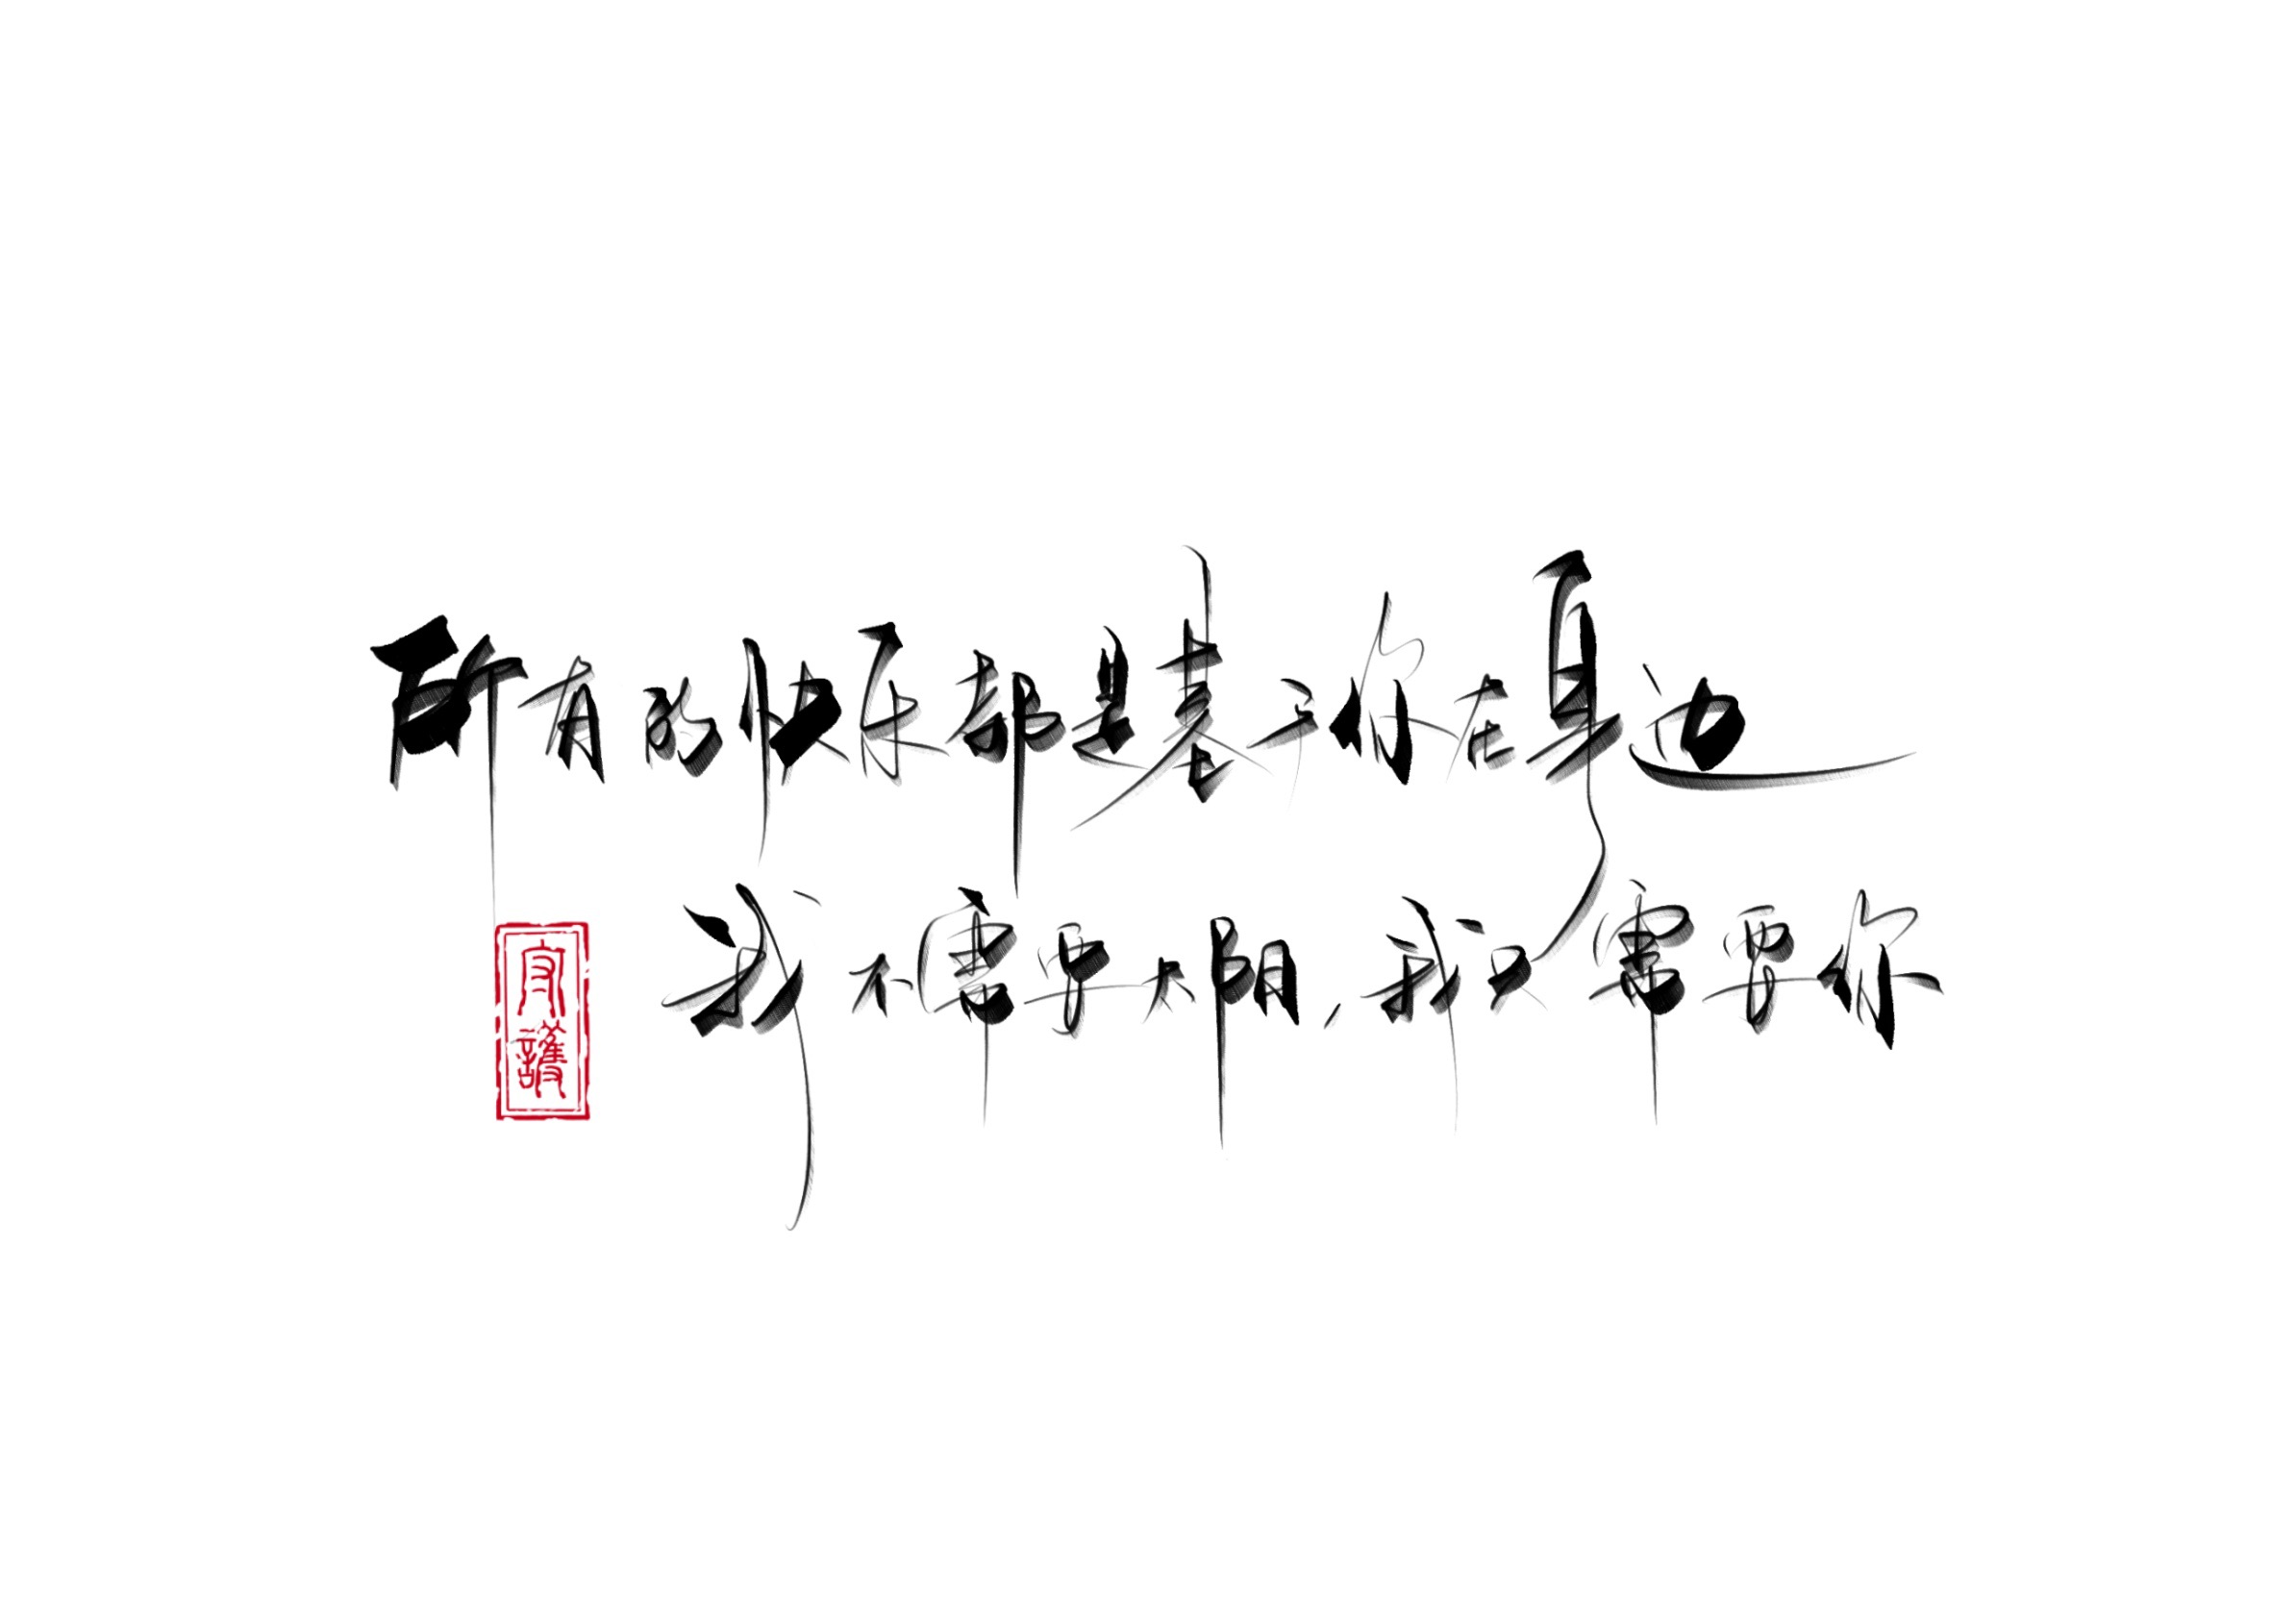 所有的快乐都是基于你在身边
我不需要太阳,我只需要你
守護